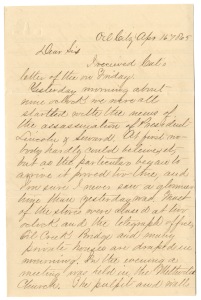 Oil City Apr. 16th 1865
Dear Sis
I received Cal's
letter of the on Friday.
Yesterday morning about
nine oclock we were all
startled with the news of
the assassination of President
Lincoln & Seward. At first no-
body hardly could believe it,
but as the particulars began to
arrive it proved too true, and
I'm sure I never saw a gloomier
time than yesterday, and most
of the stores were closed at ten
oclock and the telegraph office,
Oil Creek Bridge and many
private houses are draped in
mourning. In the evening a
meeting was held in the Methodist
Church. The pulpit and walls